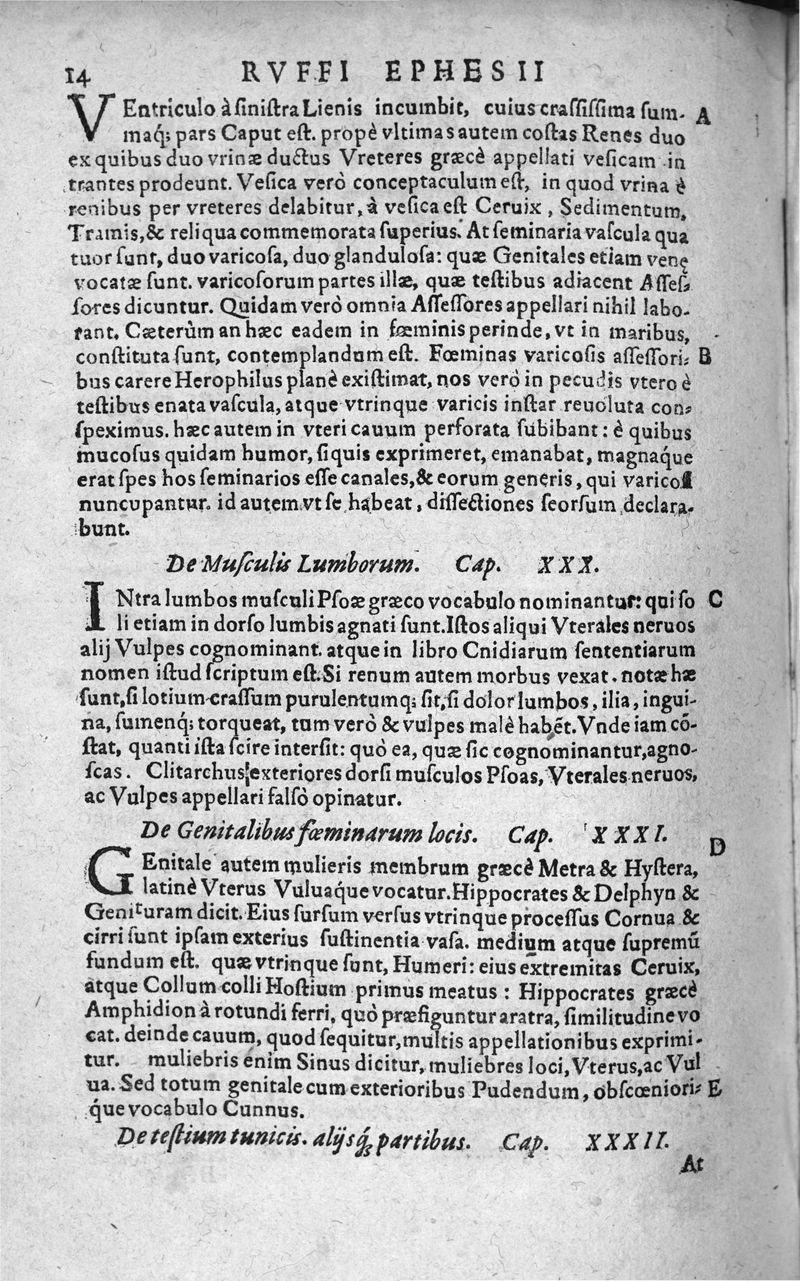 14 RVFFI EPHESII
VEntriculo à sinistra Lienis incumbit, cuius crassissima sum- A
maq́; pars Caput est. propè vltimas autem costas Renes duo
ex quibus duo vrinæ ductus Vreteres græcè appellati vesicam in
trantes prodeunt. Vesica verò conceptaculum est, in quod vrina è
renibus per vreteres delabitur, à vesica est Ceruix, Sedimentum,
Tramis, & reliqua commemorata superius. At seminaria vascula qua
tuor sunt, duo varicosa, duo glandulosa: quæ Genitales etiam venę
vocatæ sunt. varicosorum partes illæ, quæ testibus adiacent Asses-
sores dicuntur. Quidam verò omnia Assessores appellari nihil labo-
rant. Cæterùm an hæc eadem in fœminis perinde, vt in maribus,
constituta sunt, contemplandum est. Fœminas varicosis assessori- B
bus carere Herophilus planè existimat, nos verò in pecudis vtero è
testibus enata vascula, atque vtrinque varicis instar reuoluta con-
speximus. hæc autem in vteri cauum perforata subibant: è quibus
mucosus quidam humor, si quis exprimeret, emanabat, magnaq́ue
erat spes hos seminarios esse canales, & eorum generis, qui varicosi
nuncupantur. id autem vt se habeat, dissectiones seorsum declara-
bunt.
De Musculis Lumborum. Cap. XXX.
INtra lumbos musculi Psoæ græco vocabulo nominantur: qui so C
li etiam in dorso lumbis agnati sunt. Istos aliqui Vterales neruos
alij Vulpes cognominant. atque in libro Cnidiarum sententiarum
nomen istud scriptum est. Si renum autem morbus vexat. notæ hæ
sunt, si lotium crassum purulentumq; sit, si dolor lumbos, ilia, ingui-
na, sumenq́; torqueat, tum verò & vulpes malè habẽt. Vnde iam cõ-
stat, quanti ista scire intersit: quò ea, quæ sic cognominantur, agno-
scas. Clitarchus exteriores dorsi musculos Psoas, Vterales neruos,
ac Vulpes appellari falsò opinatur.
De Genitalibus fœminarum locis. Cap. XXXI. D
GEnitale autem mulieris membrum græcè Metra & Hystera,
latinè Vterus Vuluaq́ue vocatur. Hippocrates & Delphyn &
Genituram dicit. Eius sursum versus vtrinque processus Cornua &
cirri sunt ipsam exterius sustinentia vasa. medium atque supremũ
fundum est. quæ vtrinque sunt, Humeri: eius extremitas Ceruix,
atque Collum colli Hostium primus meatus: Hippocrates græcè
Amphidion à rotundi ferri, quò præfiguntur aratra, similitudine vo
cat. deinde cauum, quod sequitur, multis appellationibus exprimi-
tur. muliebris enim Sinus dicitur, muliebres loci, Vterus, ac Vul
ua. Sed totum genitale cum exterioribus Pudendum, obscœniori- E
q́ue vocabulo Cunnus.
De testium tunicis. alijsq́; partibus. Cap. XXXII.
At